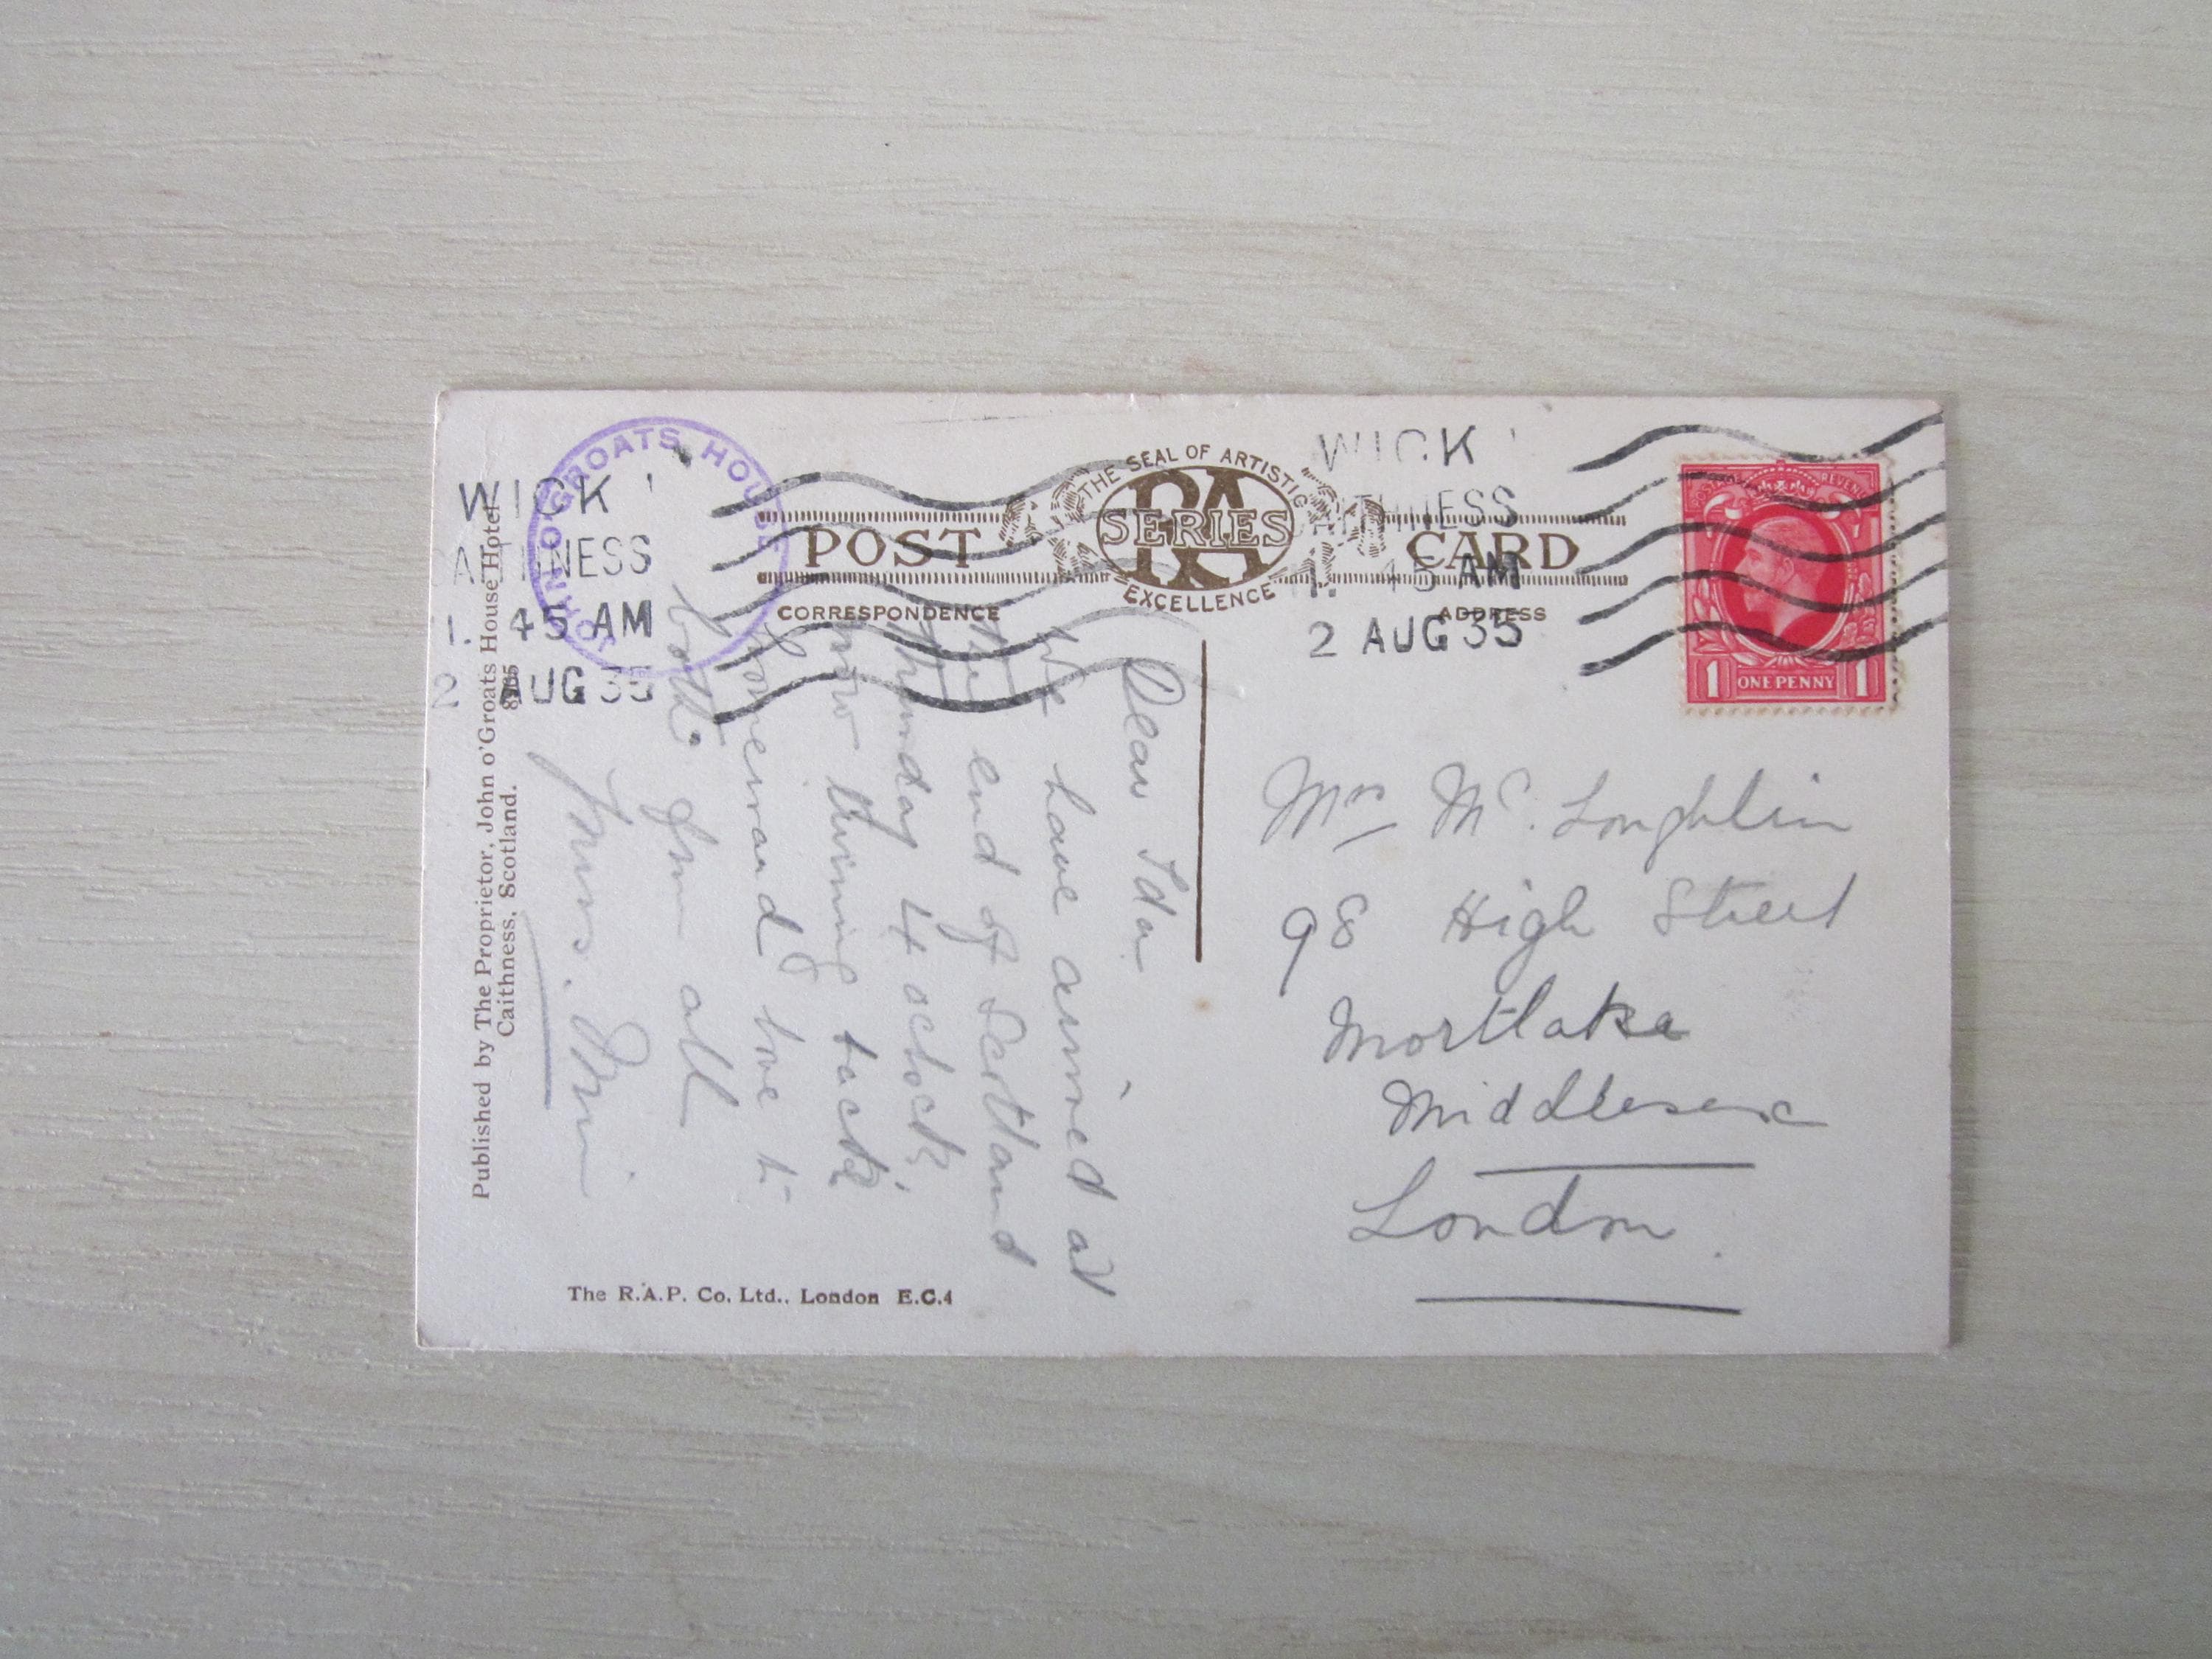 WICK
CAITHNESS
1. 45 AM
2 AUG 35
JOHN O'GROATS HOUSE
THE SEAL OF ARTISTIC
RA
SERIES
EXCELLENCE
POST CARD
CORRESPONDENCE
ADDRESS
WICK
CAITHNESS
1. 45 AM
2 AUG 35
POSTAGE REVENUE
1 ONE PENNY 1
Published by The Proprietor, John o'Groats House Hotel,
Caithness, Scotland.
Dear Ida
We have arrived at
the end of Scotland
Thursday 4 oclock,
now turning back
homeward love to
both from all
Yours.
Mrs Mc. Loughlin
98 High Street
Mortlake
Middlesex
London.
The R.A.P. Co. Ltd., London E.C.4